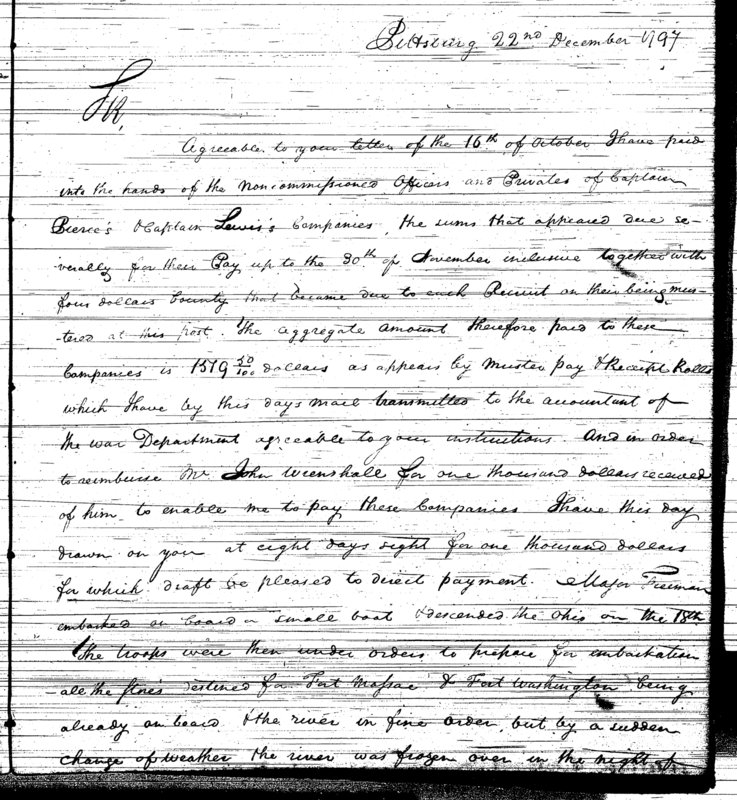 Pittsburg 22nd December 1797
SIR,
Agreeable to your letter of the 16th of October I have paid
into the hands of the noncommissioned Officers and Privates of Captain
Pierce's & Captain Lewis's Companies, the sums that appeared due se-
verally for their Pay up to the 30th of November inclusive together with
four dollars bounty that became due to each Recruit on their being mus-
tered at this post. The aggregate amount therefore paid to these
Companies is 1519 50/100 dollars as appears by Muster pay & Receipt Rolls
which I have by this days mail transmitted to the accountant of
the war Department agreeable to your instructions. And in order
to reimburse Mr John for one thousand dollars received
of him to enable me to pay these Companies I have this day
drawn on you at eight days sight for one thousand dollars
for which draft be pleased to direct payment. Major Freeman
embarked on board a small boat & descended the Ohio on the 18th
The troops were then under orders to prepare for embarkation
all the stores destined for Fort Massac & Fort Washington being
already on board & the river in fine order, but by a sudden
change of weather the river was frozen over in the night of